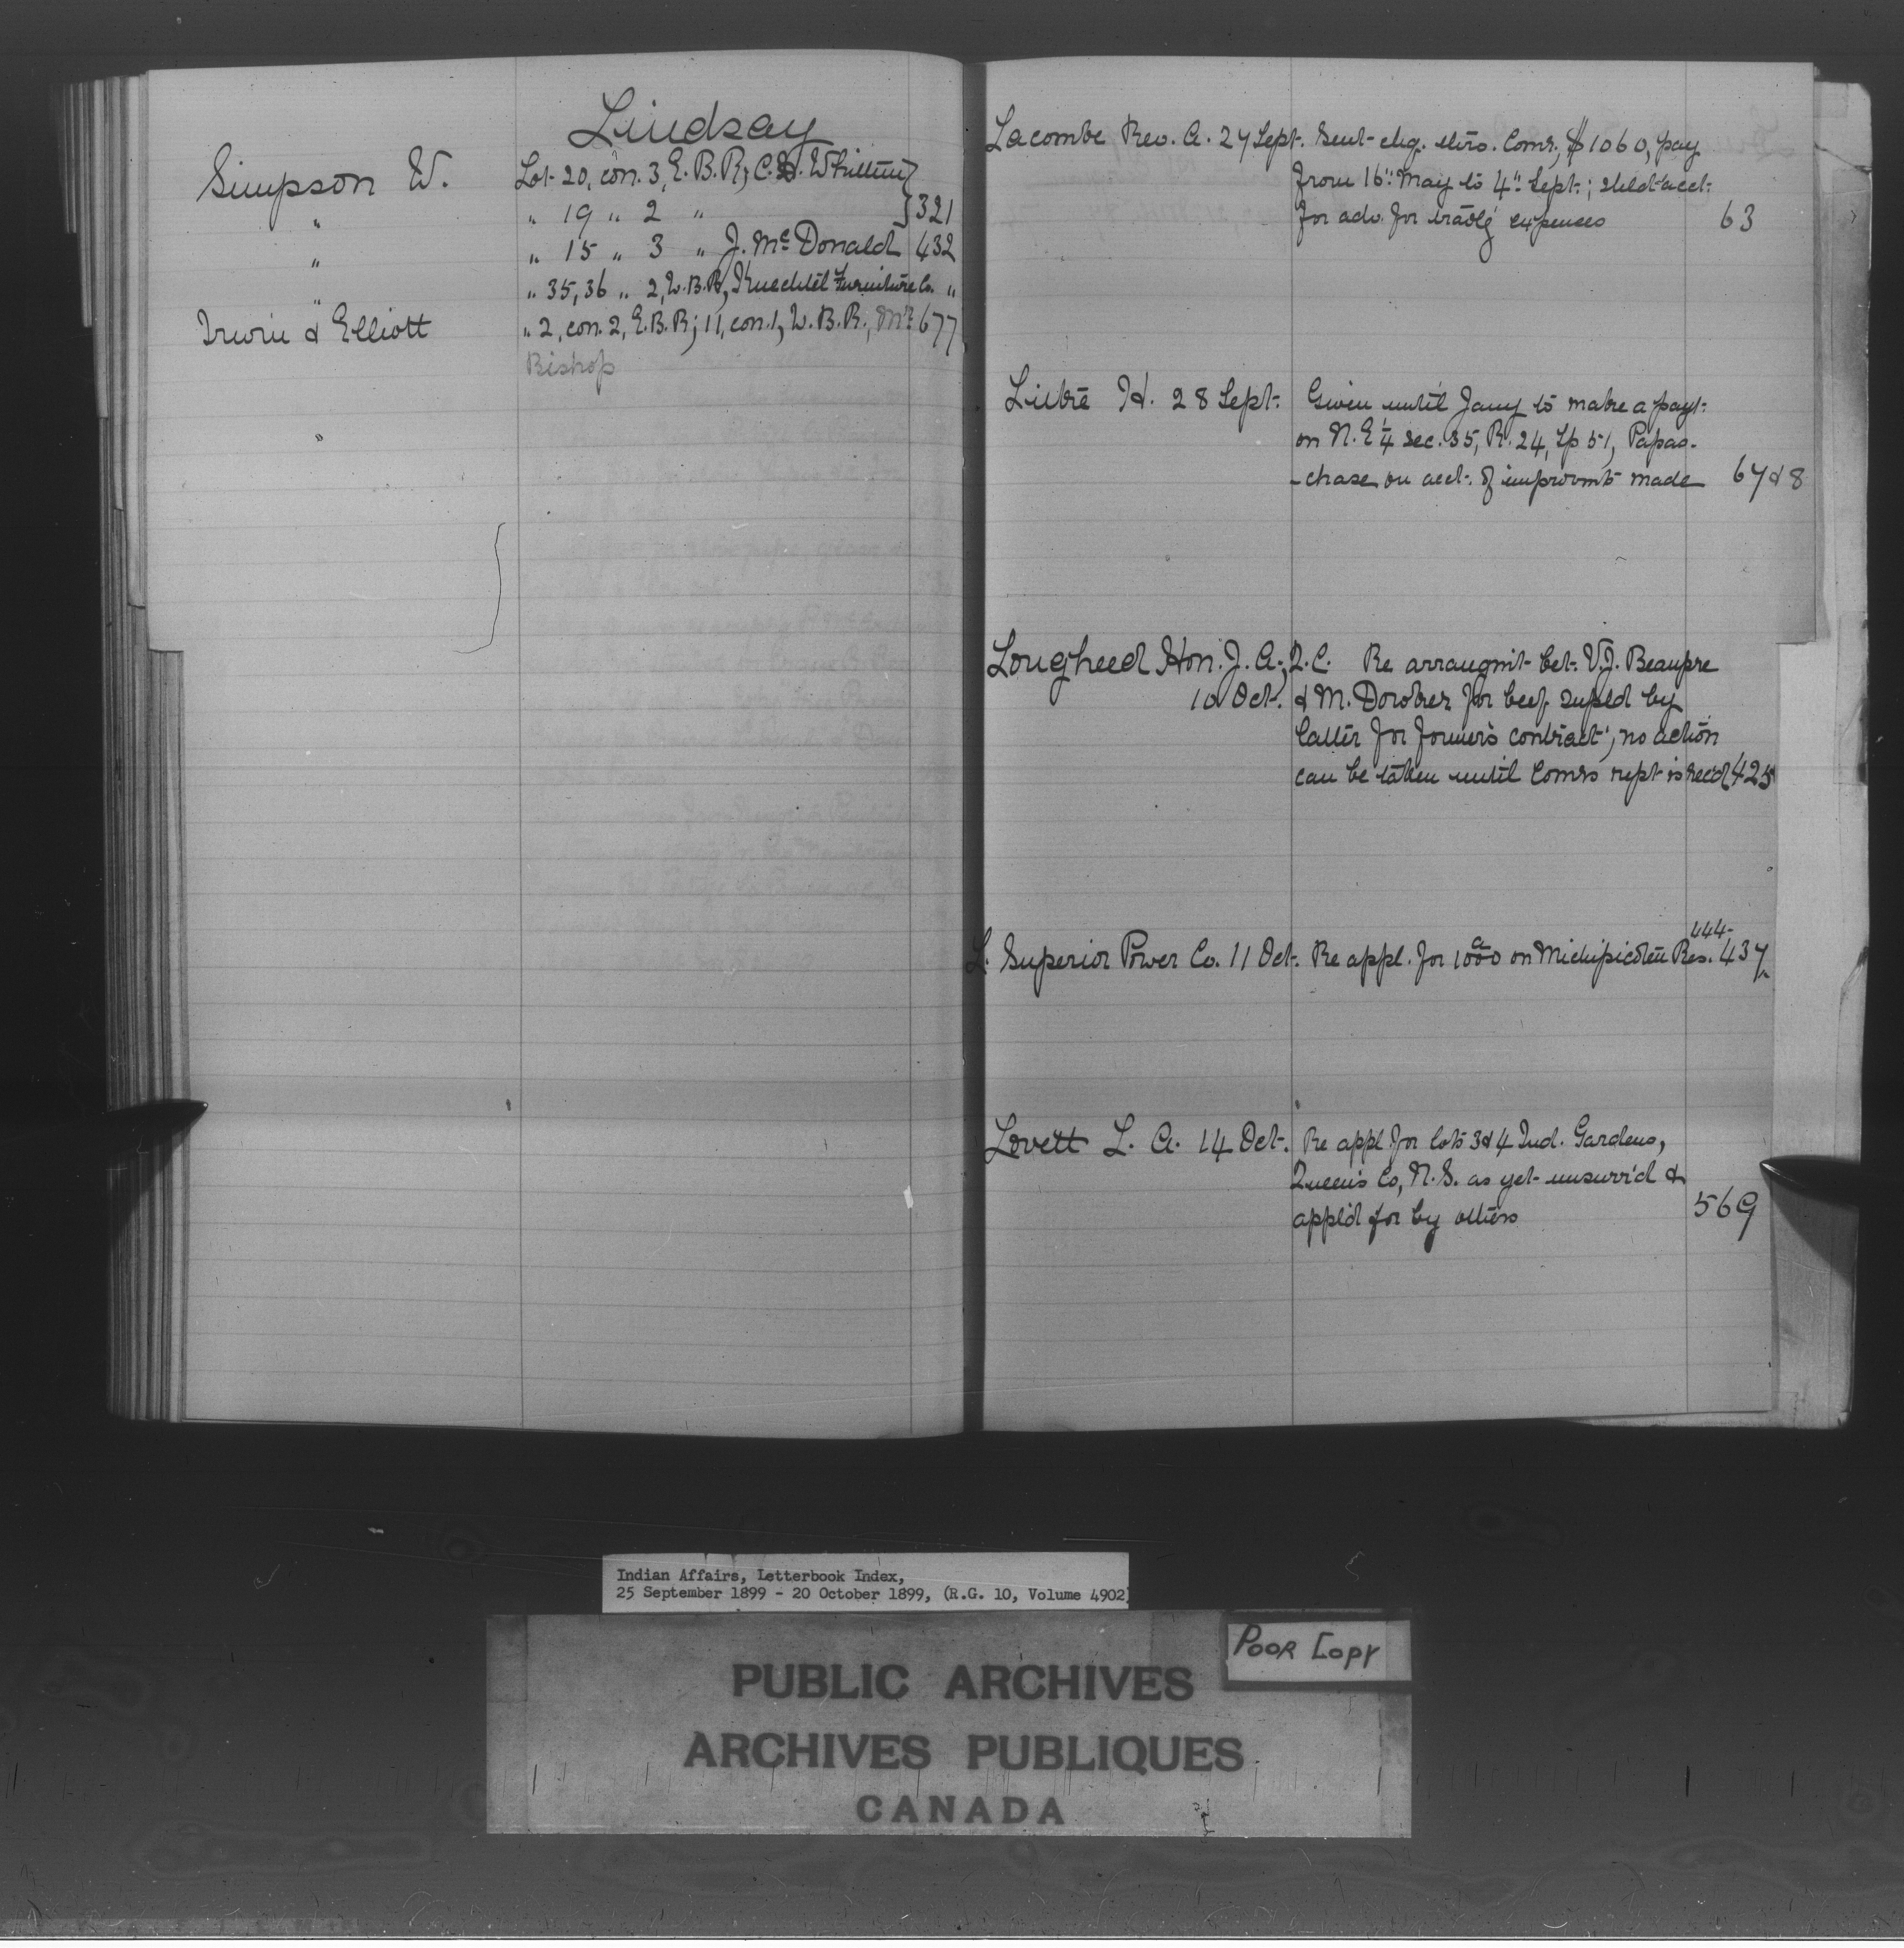 Lindsay
Simpson W. Lot 20, con. 3, E. B. R; C. W.
" " 19 " 2 " } 321
" " 15 " 3 " J. McDonald 432
" " 35, 36 " 2, W. B. R, Knechtel Furniture Co. "
Irwin & Elliott " 2, con. 2, E. B. R; 11, con. 1, W. B. R., Mr. 677
Bishop
Lacombe Rev. A. 27 Sept. Sent chq. thro. Comr., $1060, pay
from 16" May to 4" Sept.; shld acct.
for adv. for travlg expenses 63
H. 28 Sept. Given until Jany to make a payt.
on N. E ¼ Sec. 35, R. 24, Tp 51, Papas-
-chase on acct. of improvmts made 67 & 8
Lougheed Hon. J. A., Q. C. Re arrangmt bet. V. J. Beaupre
10 Oct. & M. for beef supld by
latter for former's contract, no action
can be taken until Comrs rept is rec'd 425
444-
L. Superior Power Co. 11 Oct. Re appl. for 1000 a on Michipicoten Res. 437
Lovett L. A. 14 Oct. Re appl. for lots 3 & 4 Ind. Gardens,
Queen's Co, N. S. as yet unsurv'd &
appl'd for by others 569
Indian Affairs, Letterbook Index,
25 September 1899 - 20 October 1899, (R.G. 10, Volume 4902)
POOR COPY
PUBLIC ARCHIVES
ARCHIVES PUBLIQUES
CANADA